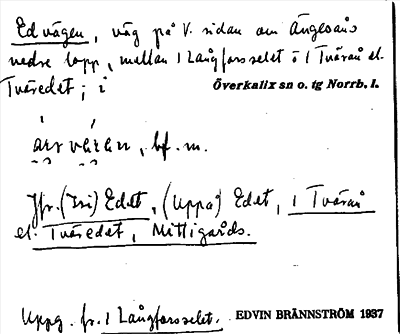 Edvägen, väg på V. sidan om Ängesåns
nedre lopp, mellan 1 Långforsselet o 1 Tvärån el.
Tväredet; i Överkalix sn o. tg Norrb. l.
bf. m.
Jfr. (Isi) Edet, (Uppa) Edet, 1 Tvärån
el. Tväredet, Mittigårds.
Uppg. fr. 1 Långforsselet. EDVIN BRÄNNSTRÖM 1937